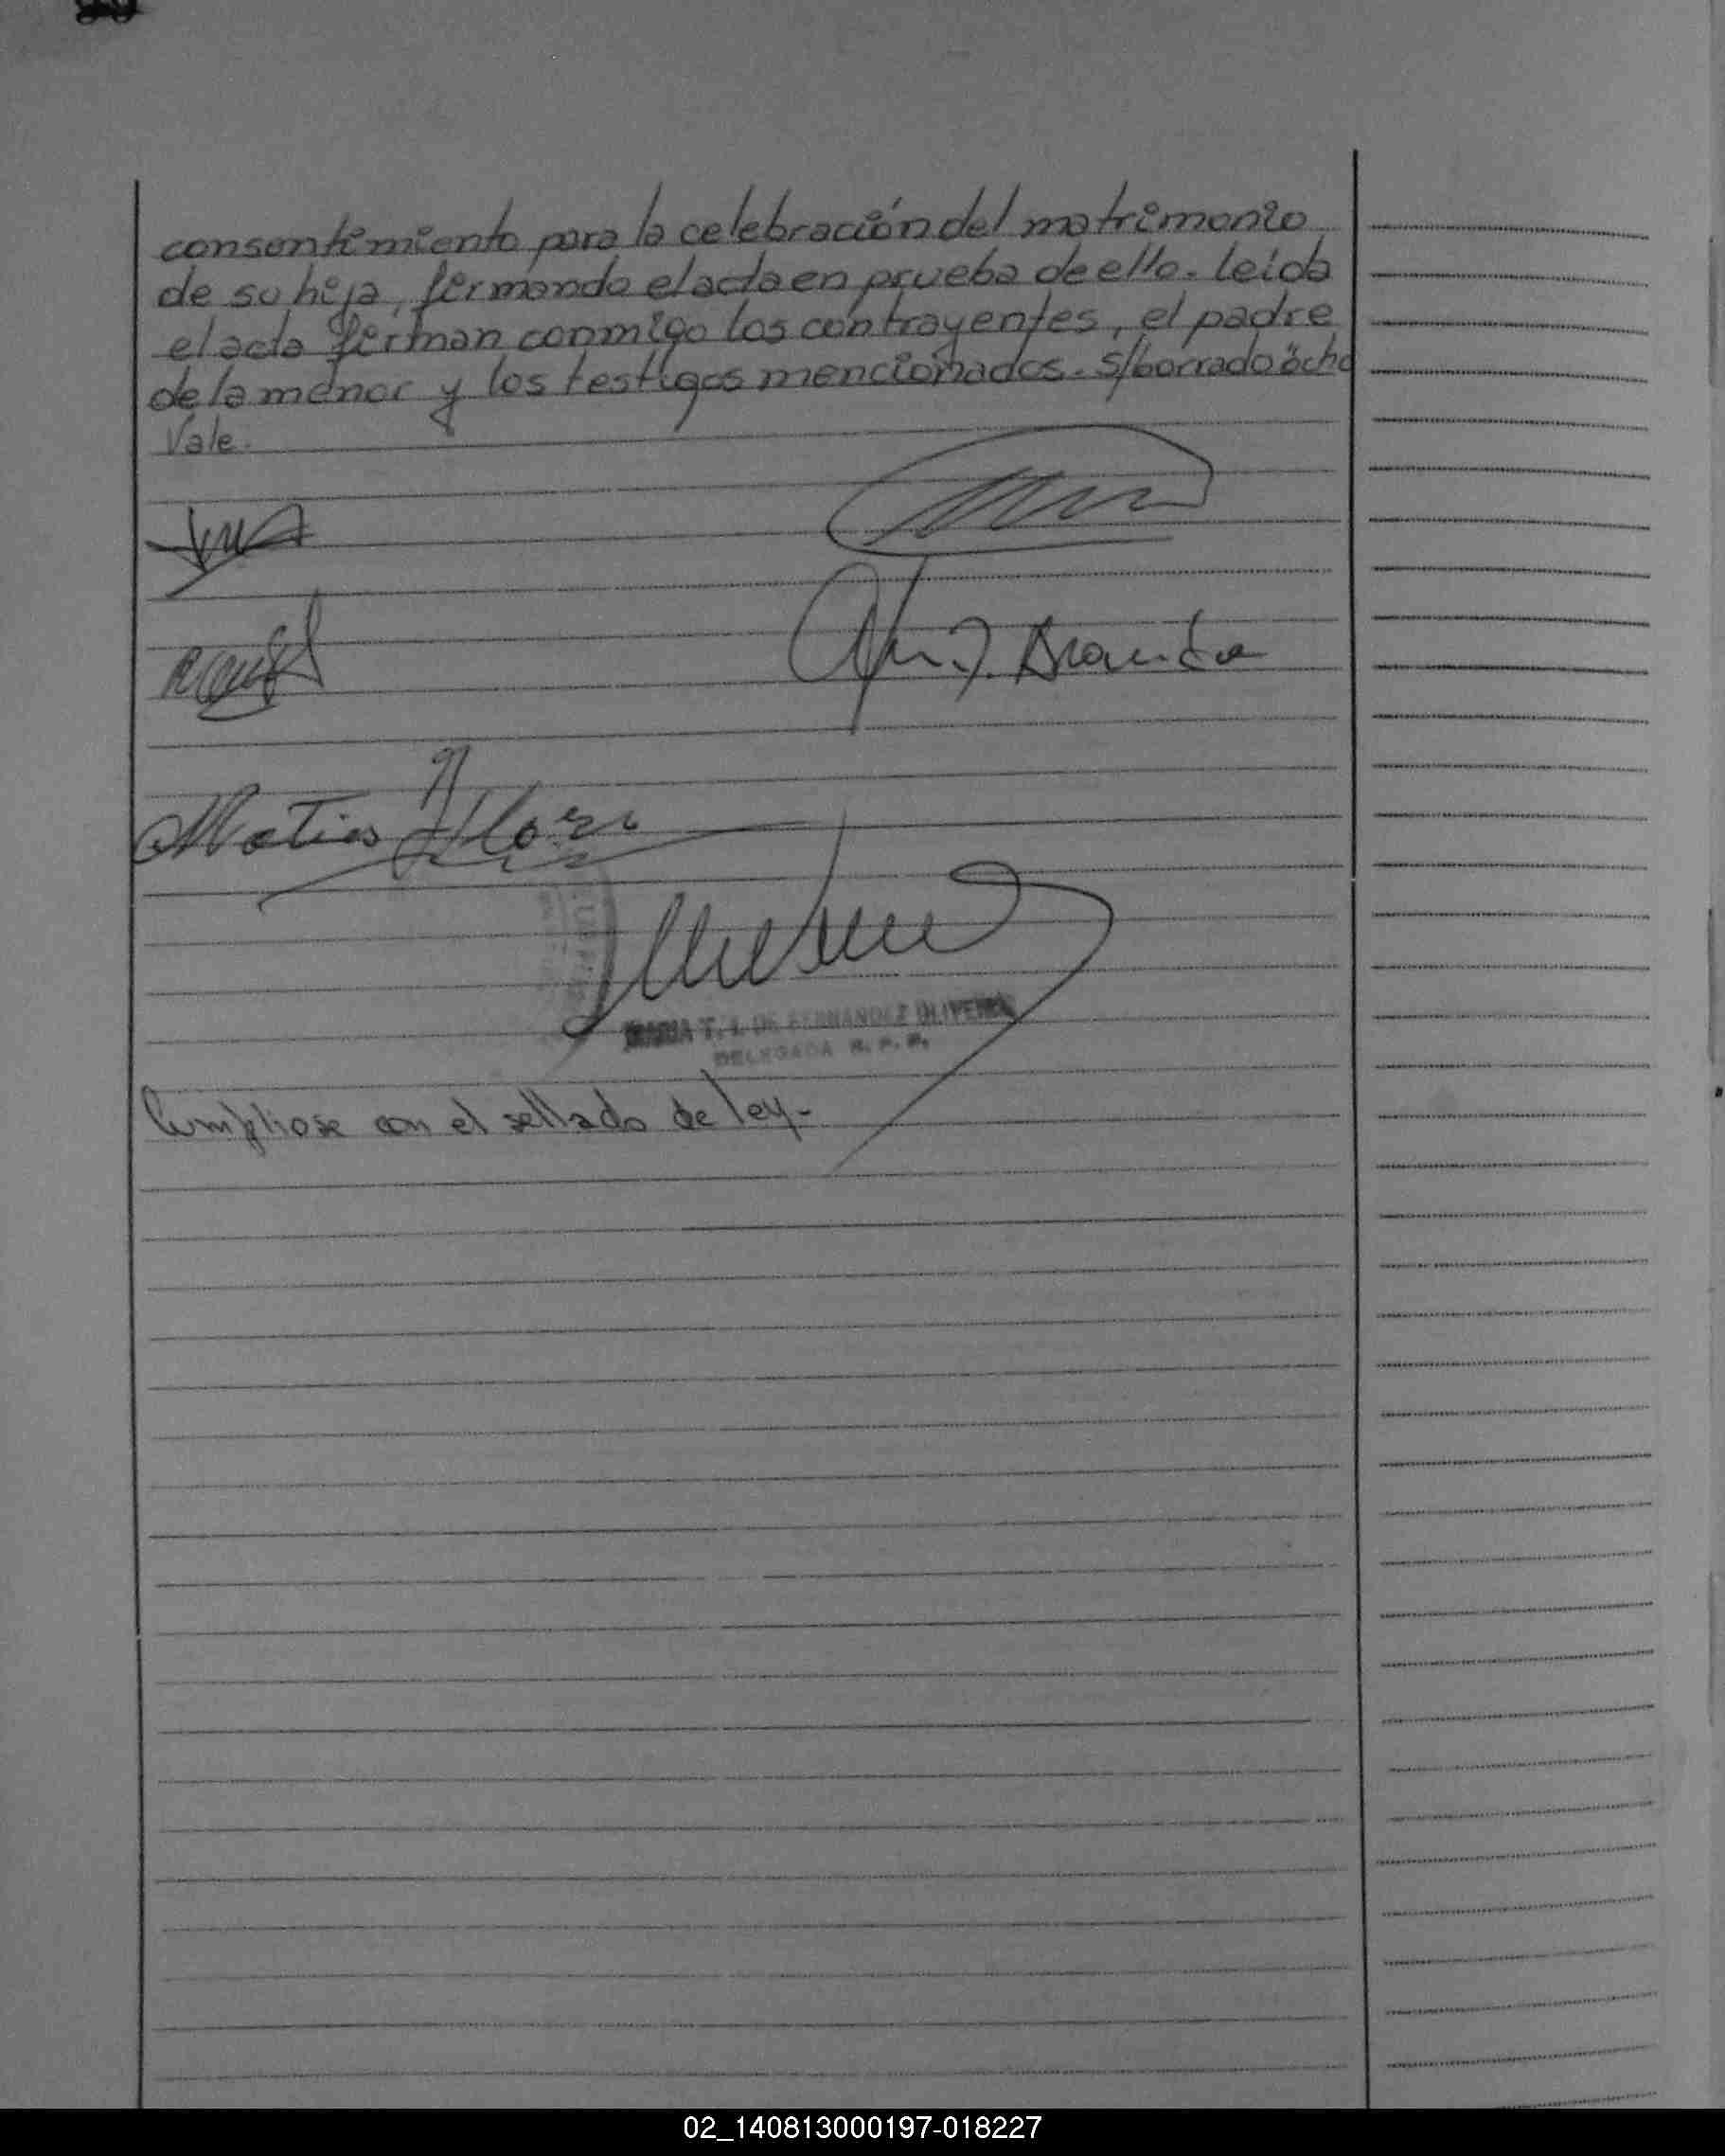 consentimiento para la celebración del matrimonio
de su hija, firmando el acta en prueba de ello. Leída
el acta firman conmigo los contrayentes, el padre
de la menor y los testigos mencionados. S/borrado "ocho
Vale.
Matias
MARIA T. I. DE FERNANDEZ OLIVEIRA
DELEGADA R. P. P.
Cumpliose con el sellado de ley-
02_140813000197-018227